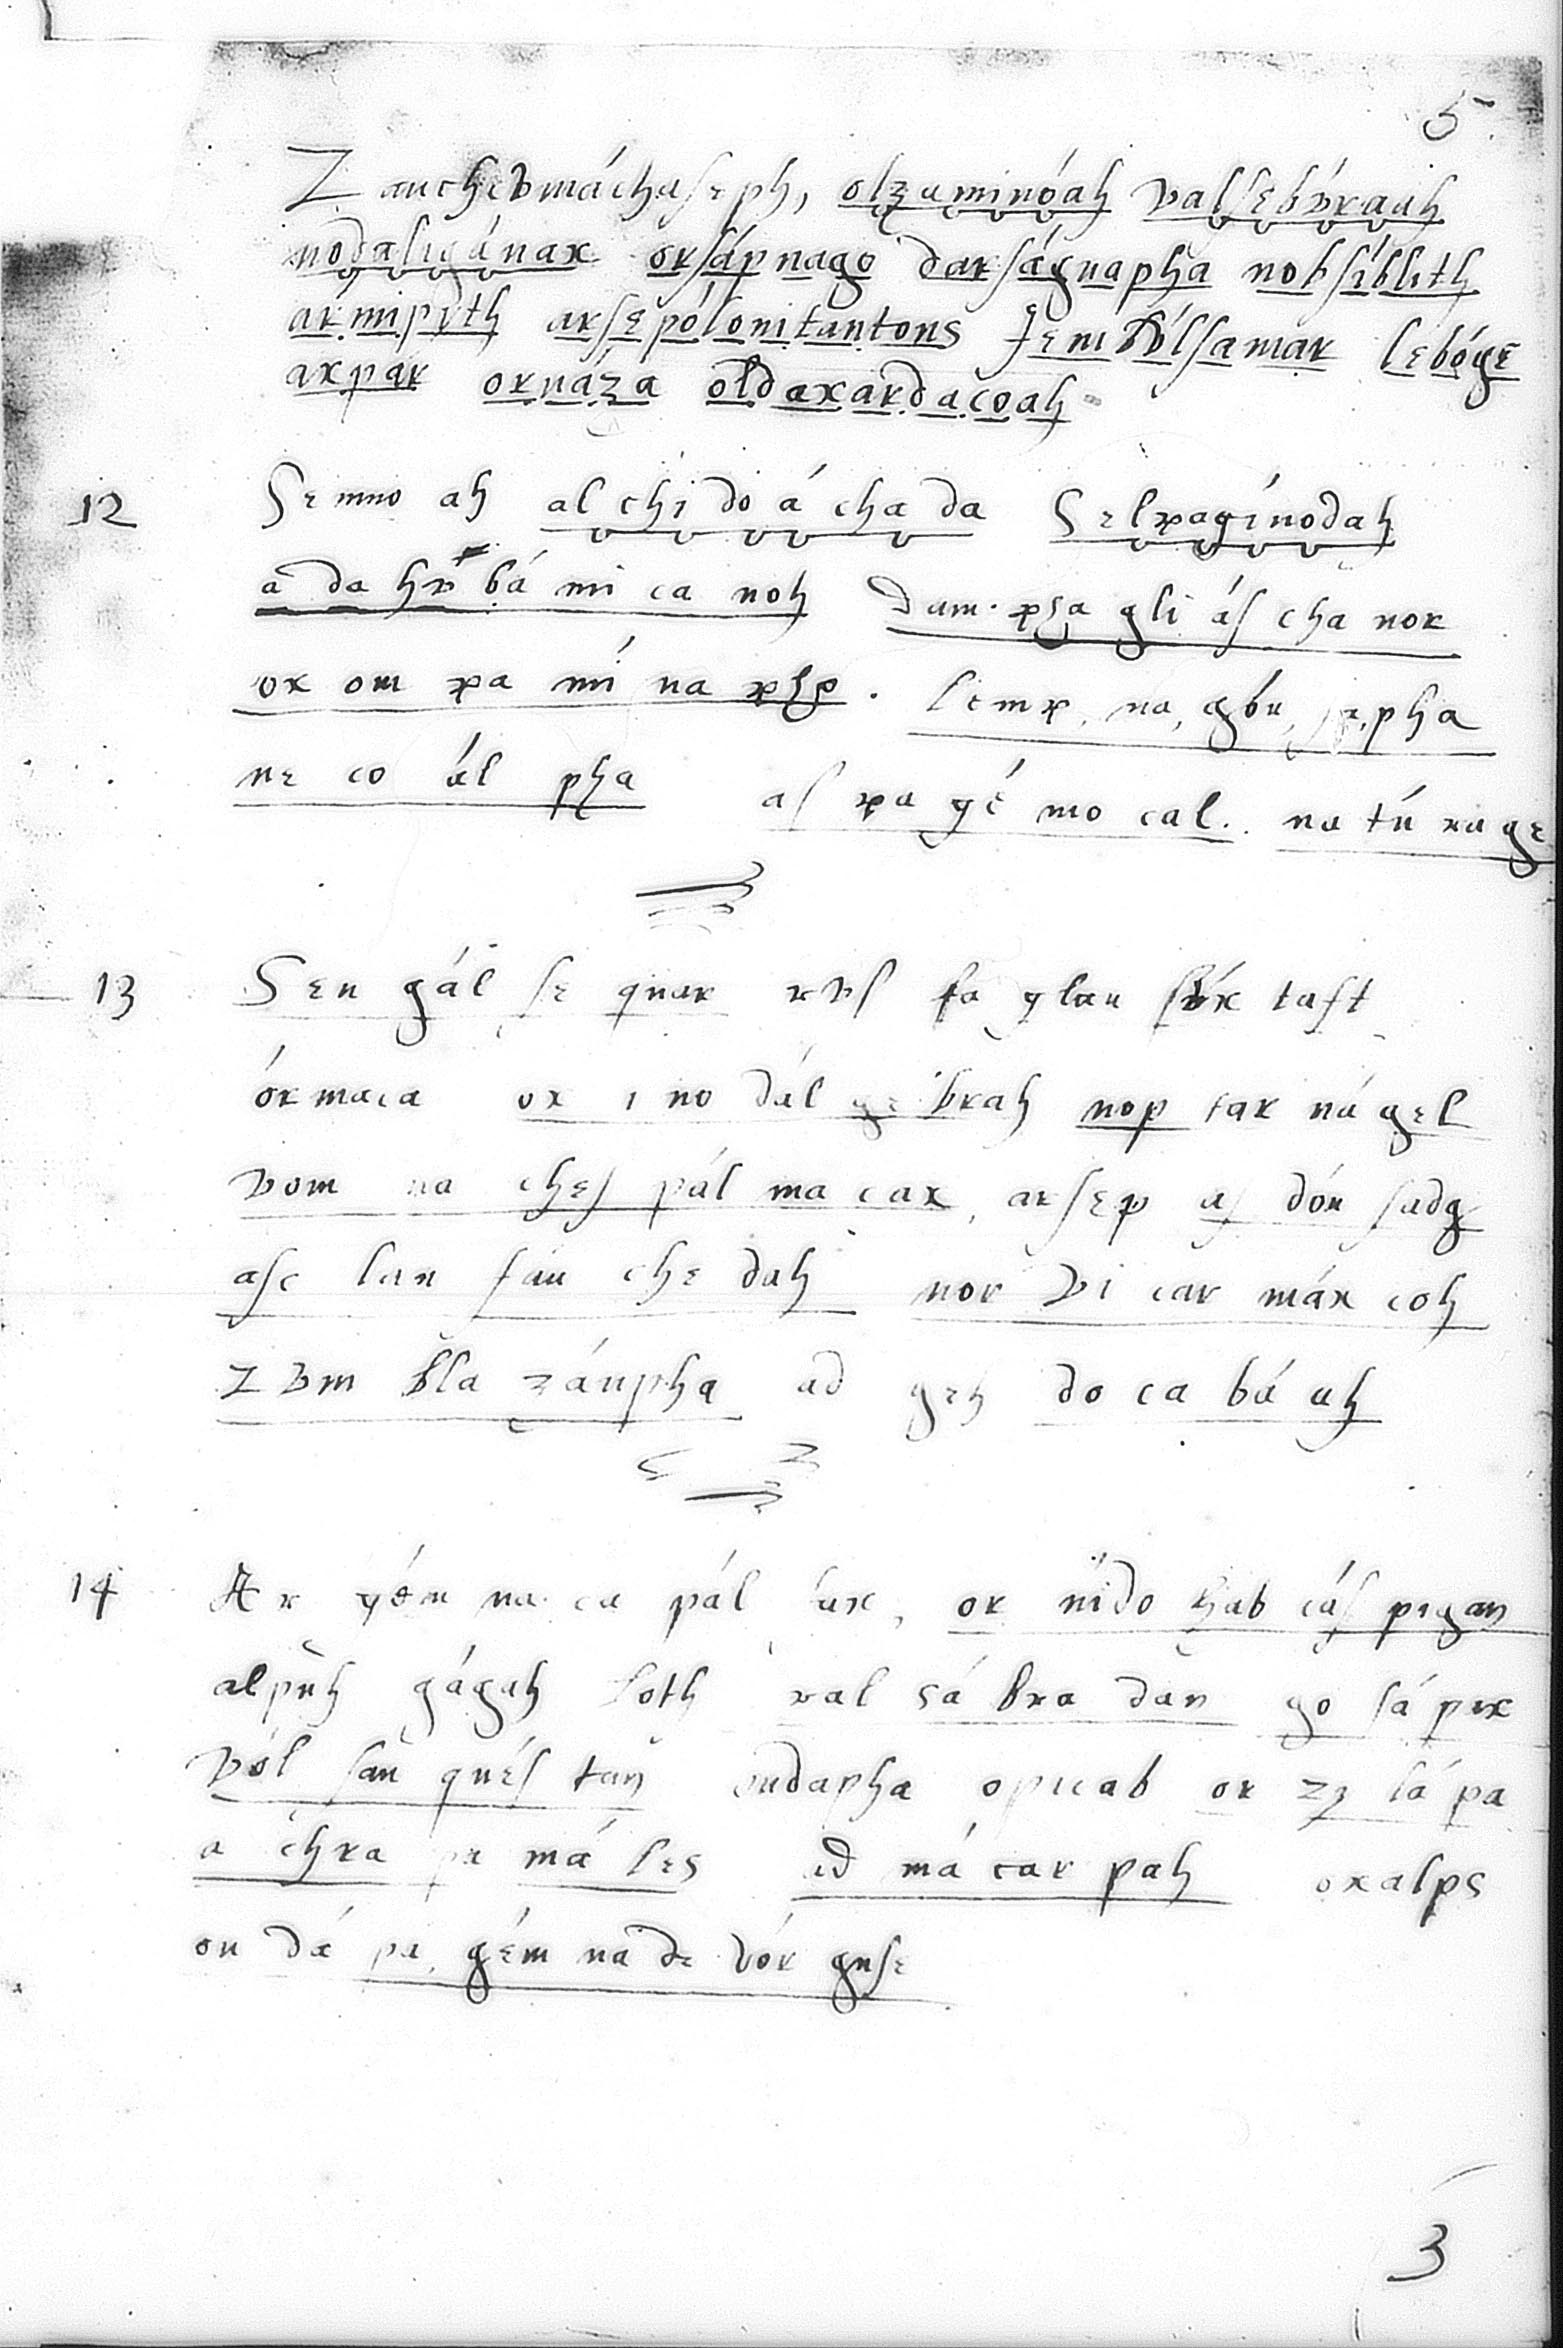 5
Zanchevmáchaseph, olzaminóah valsebúraah
nodaligánax orsápnago darságnapha nobsíblith
armipyth arsepólonitantons Jembúlsamar lebóge
axpar ornáza oldaxardacoah
12 Semno ah al chi do á cha da Selpagínodah
a da hu bá mi ca noh dam. pha gli ás cha nor
ox om pa mí na pho. lemp, na, gón, pha
ne co ál pha as pa gé mo cal. na tú ra ge
13 Sen gál se quar rus fa glan súx taft
órmaca ox i no dál ge brah nop tar ná gel
vom na ches pál ma cax, arsep as dón sadg
asc lan fán che dah nor vi car máx coh
zum bla zánpha ad geh do ca bá ah
14 Ar gém na ca pál fax, or nido hab cás pigan
alpuh gágah loth ral sá bra dan go sá pex
vól san qués tan ondapha opicab or zy lá pa
a chra pa má les ad má car pah oxalps
on dá pa, gém na de vór guse
3